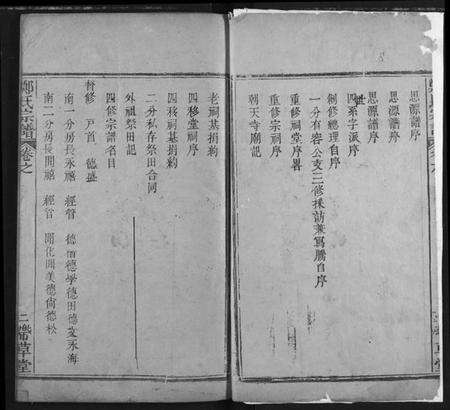 思源譜序
思源譜序
思源譜序
四系字派序
創修總理自序
一分有容公支三修採訪兼寫騰自序
重修祠堂序畧
重修宗祠序
朝天寺廟記
老祠基捐約
四移堂序
四移祠基捐約
二分私存祭田合同
外祖祭祠記
四修宗譜名目
督修 戶首 德盛
南一分房長永福 經管 德四德學德田德永海
南二分房長開福 經管 開化開美德尚德松
鄭氏宗譜 卷之
二㡪草堂